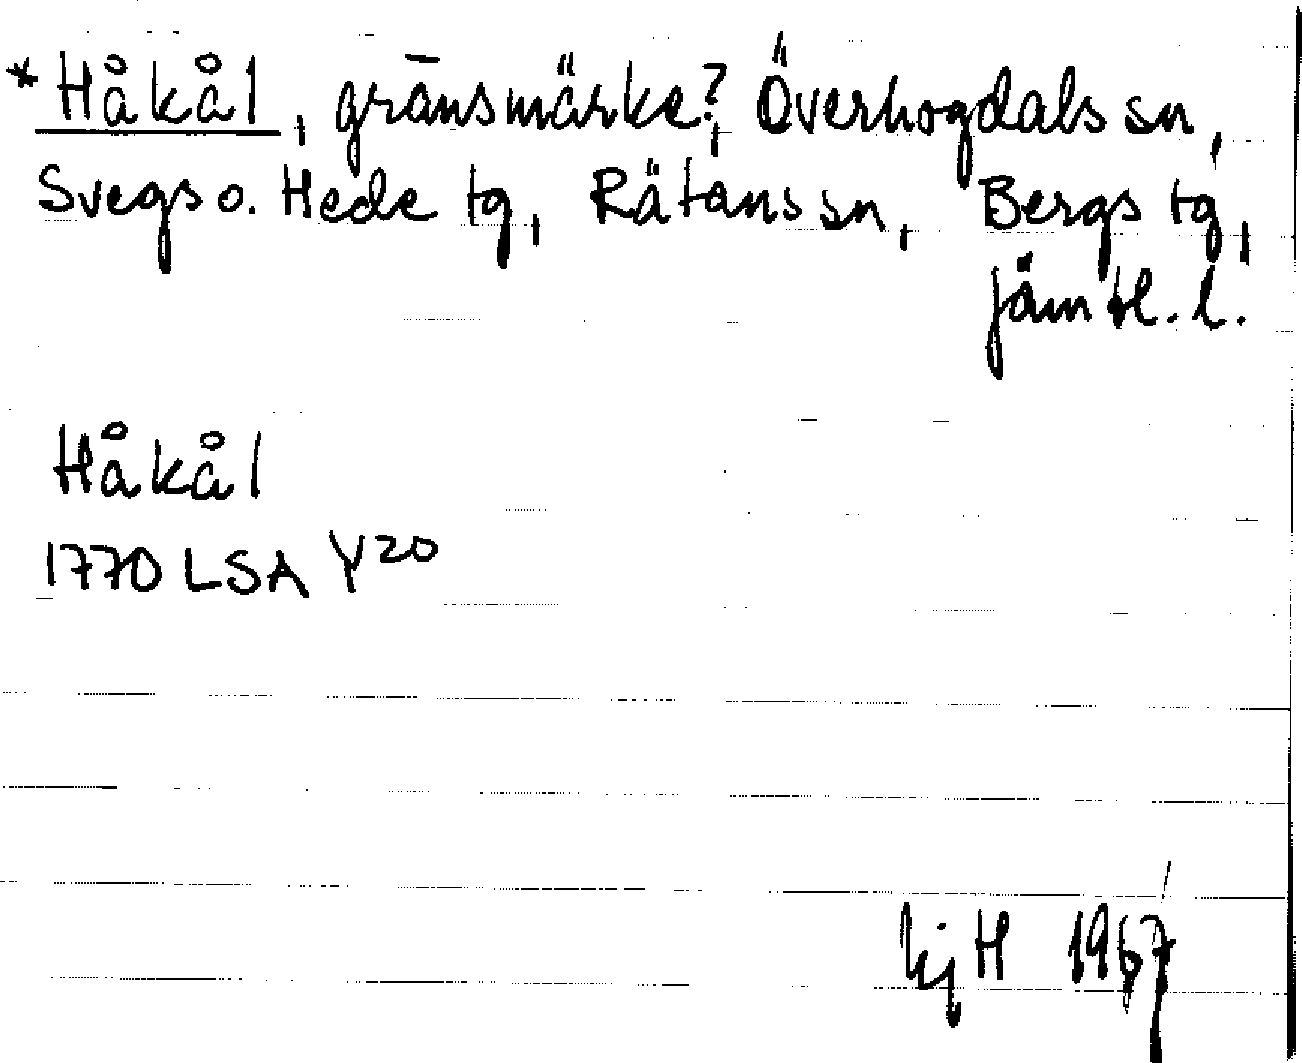 *Håkål, gränsmärke?, Överhogdals sn,
Svegs o. Hede tg, Rätans sn, Bergs tg,
Jämtl. l.
Håkål
1770 LSA Y20
kj H 1967